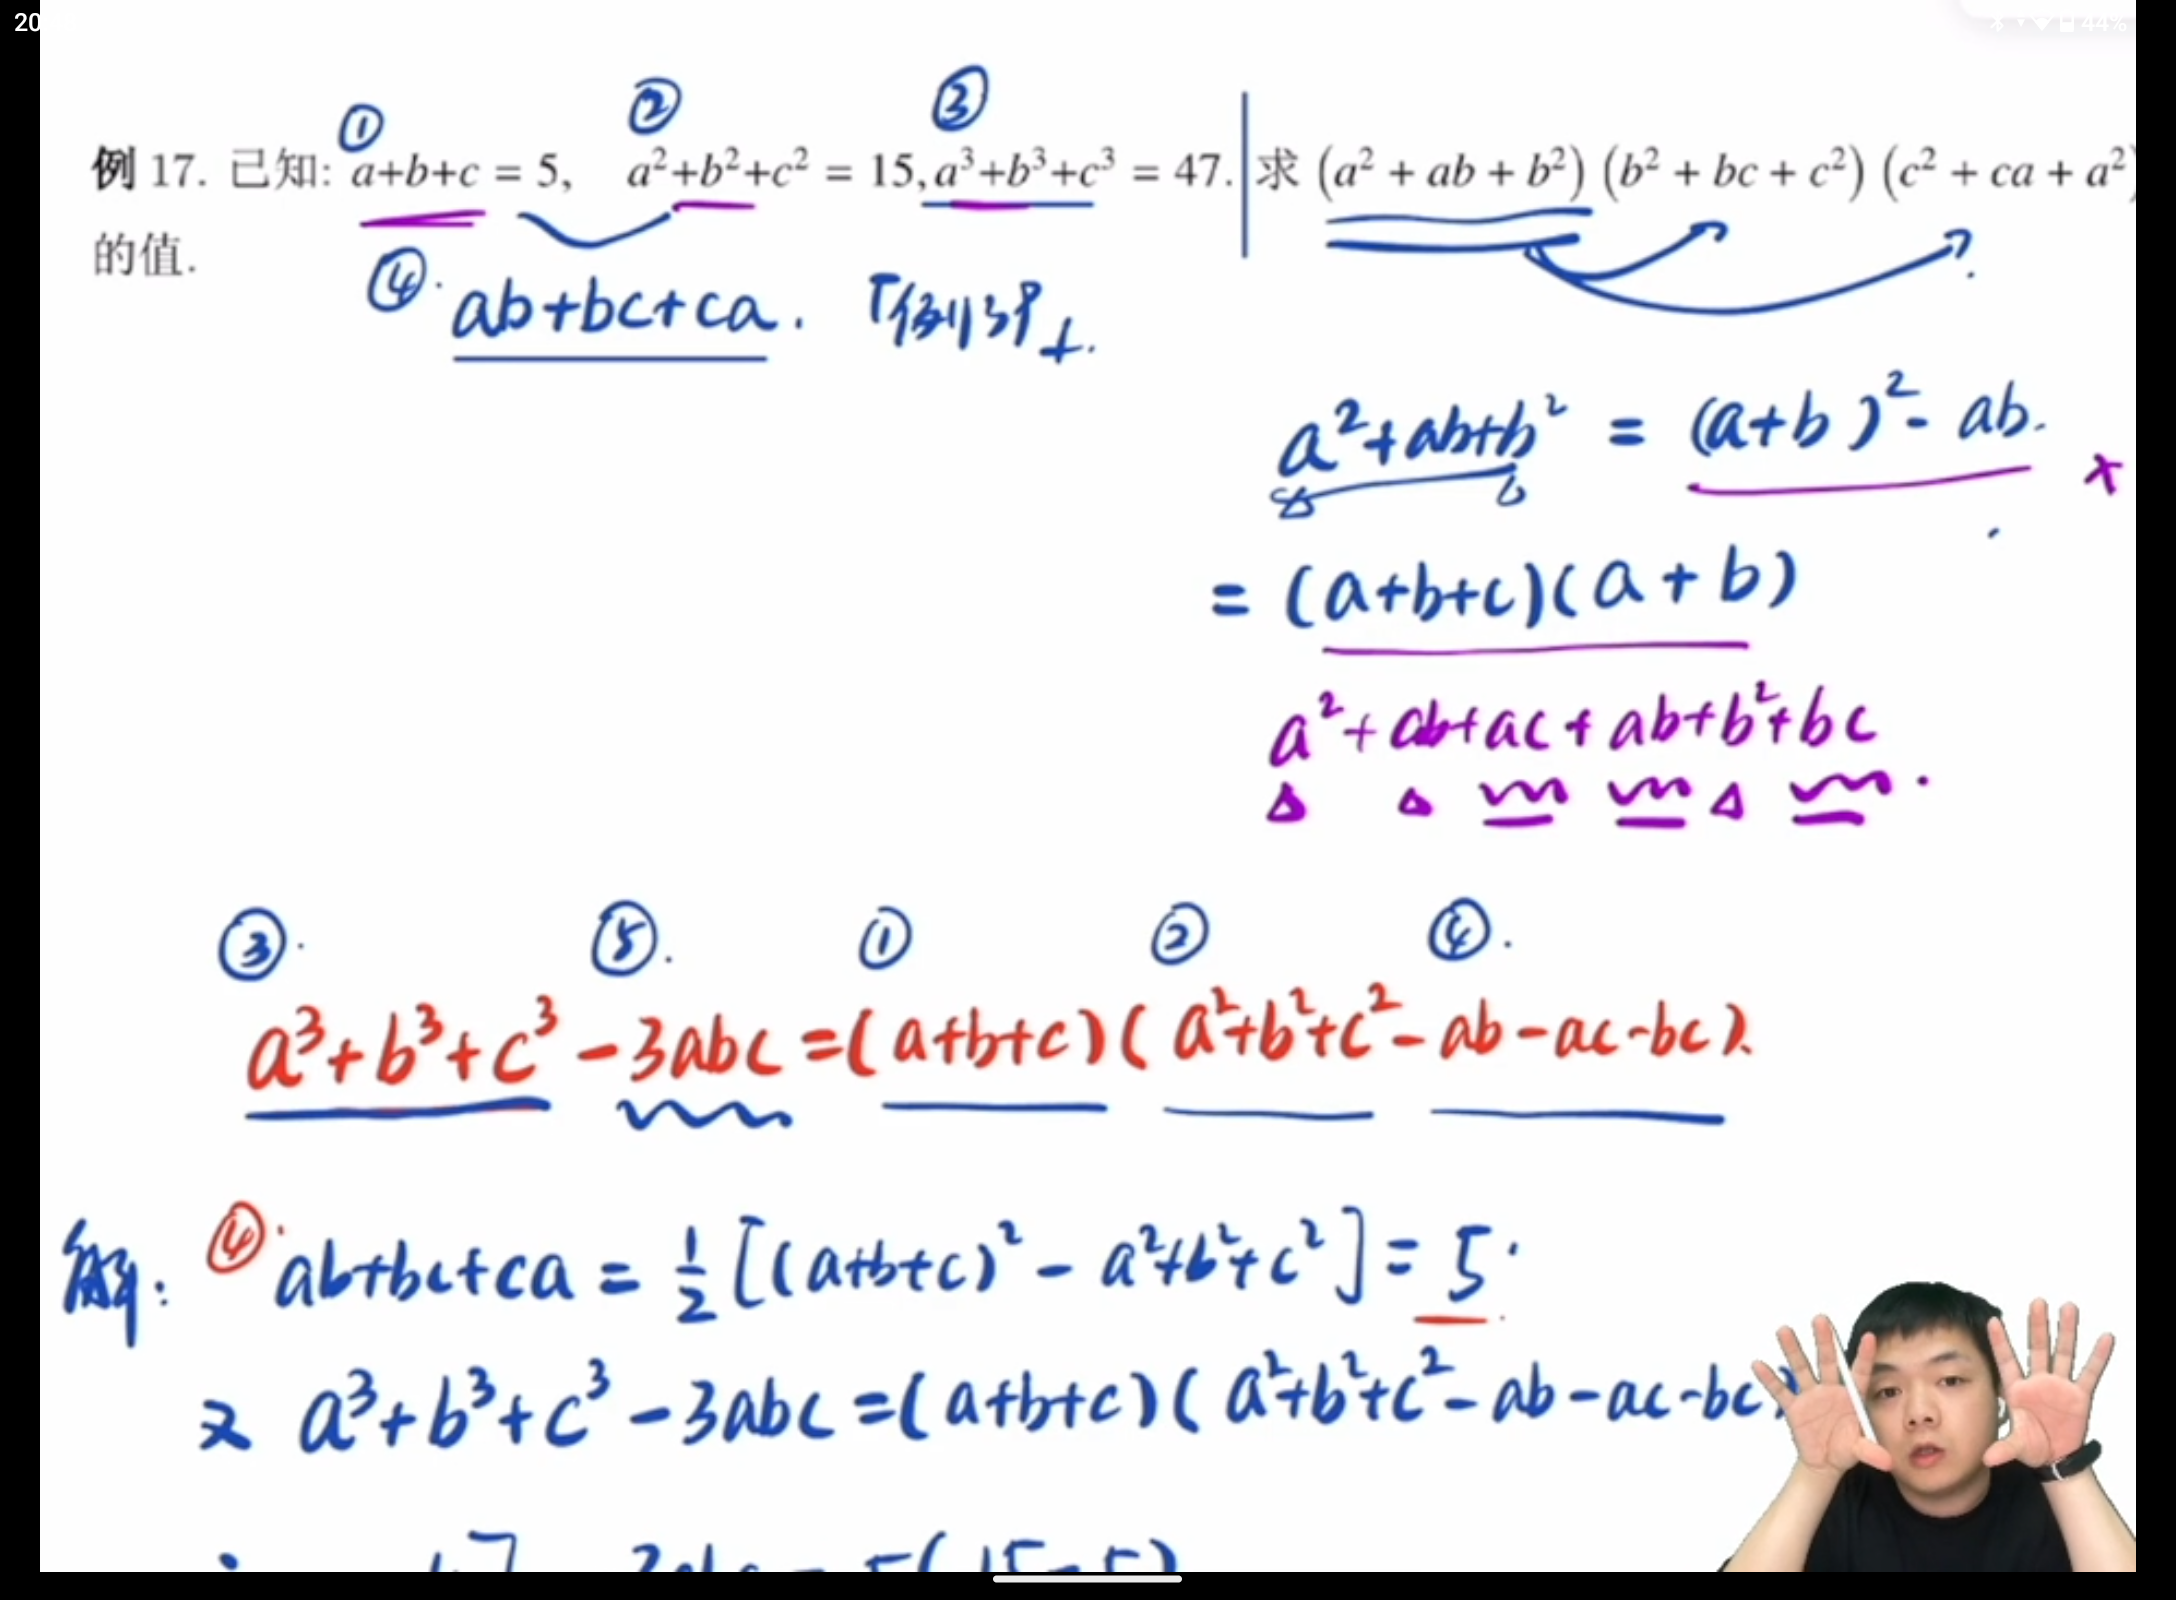 20
44%
① ② ③
例 17. 已知: a+b+c = 5, a²+b²+c² = 15, a³+b³+c³ = 47. 求 (a² + ab + b²) (b² + bc + c²) (c² + ca + a²)
的值.
④. ab+bc+ca.
a²+ab+b² = (a+b)² - ab. x
= (a+b+c)(a+b)
a²+ab+ac+ab+b²+bc
③. ⑤. ① ② ④.
a³+b³+c³ -3abc =(a+b+c)( a²+b²+c²- ab-ac-bc).
解: ④ ab+bc+ca = ½[(a+b+c)² - a²+b²+c²] = 5.
又 a³+b³+c³ -3abc =(a+b+c)( a²+b²+c²- ab-ac-bc)